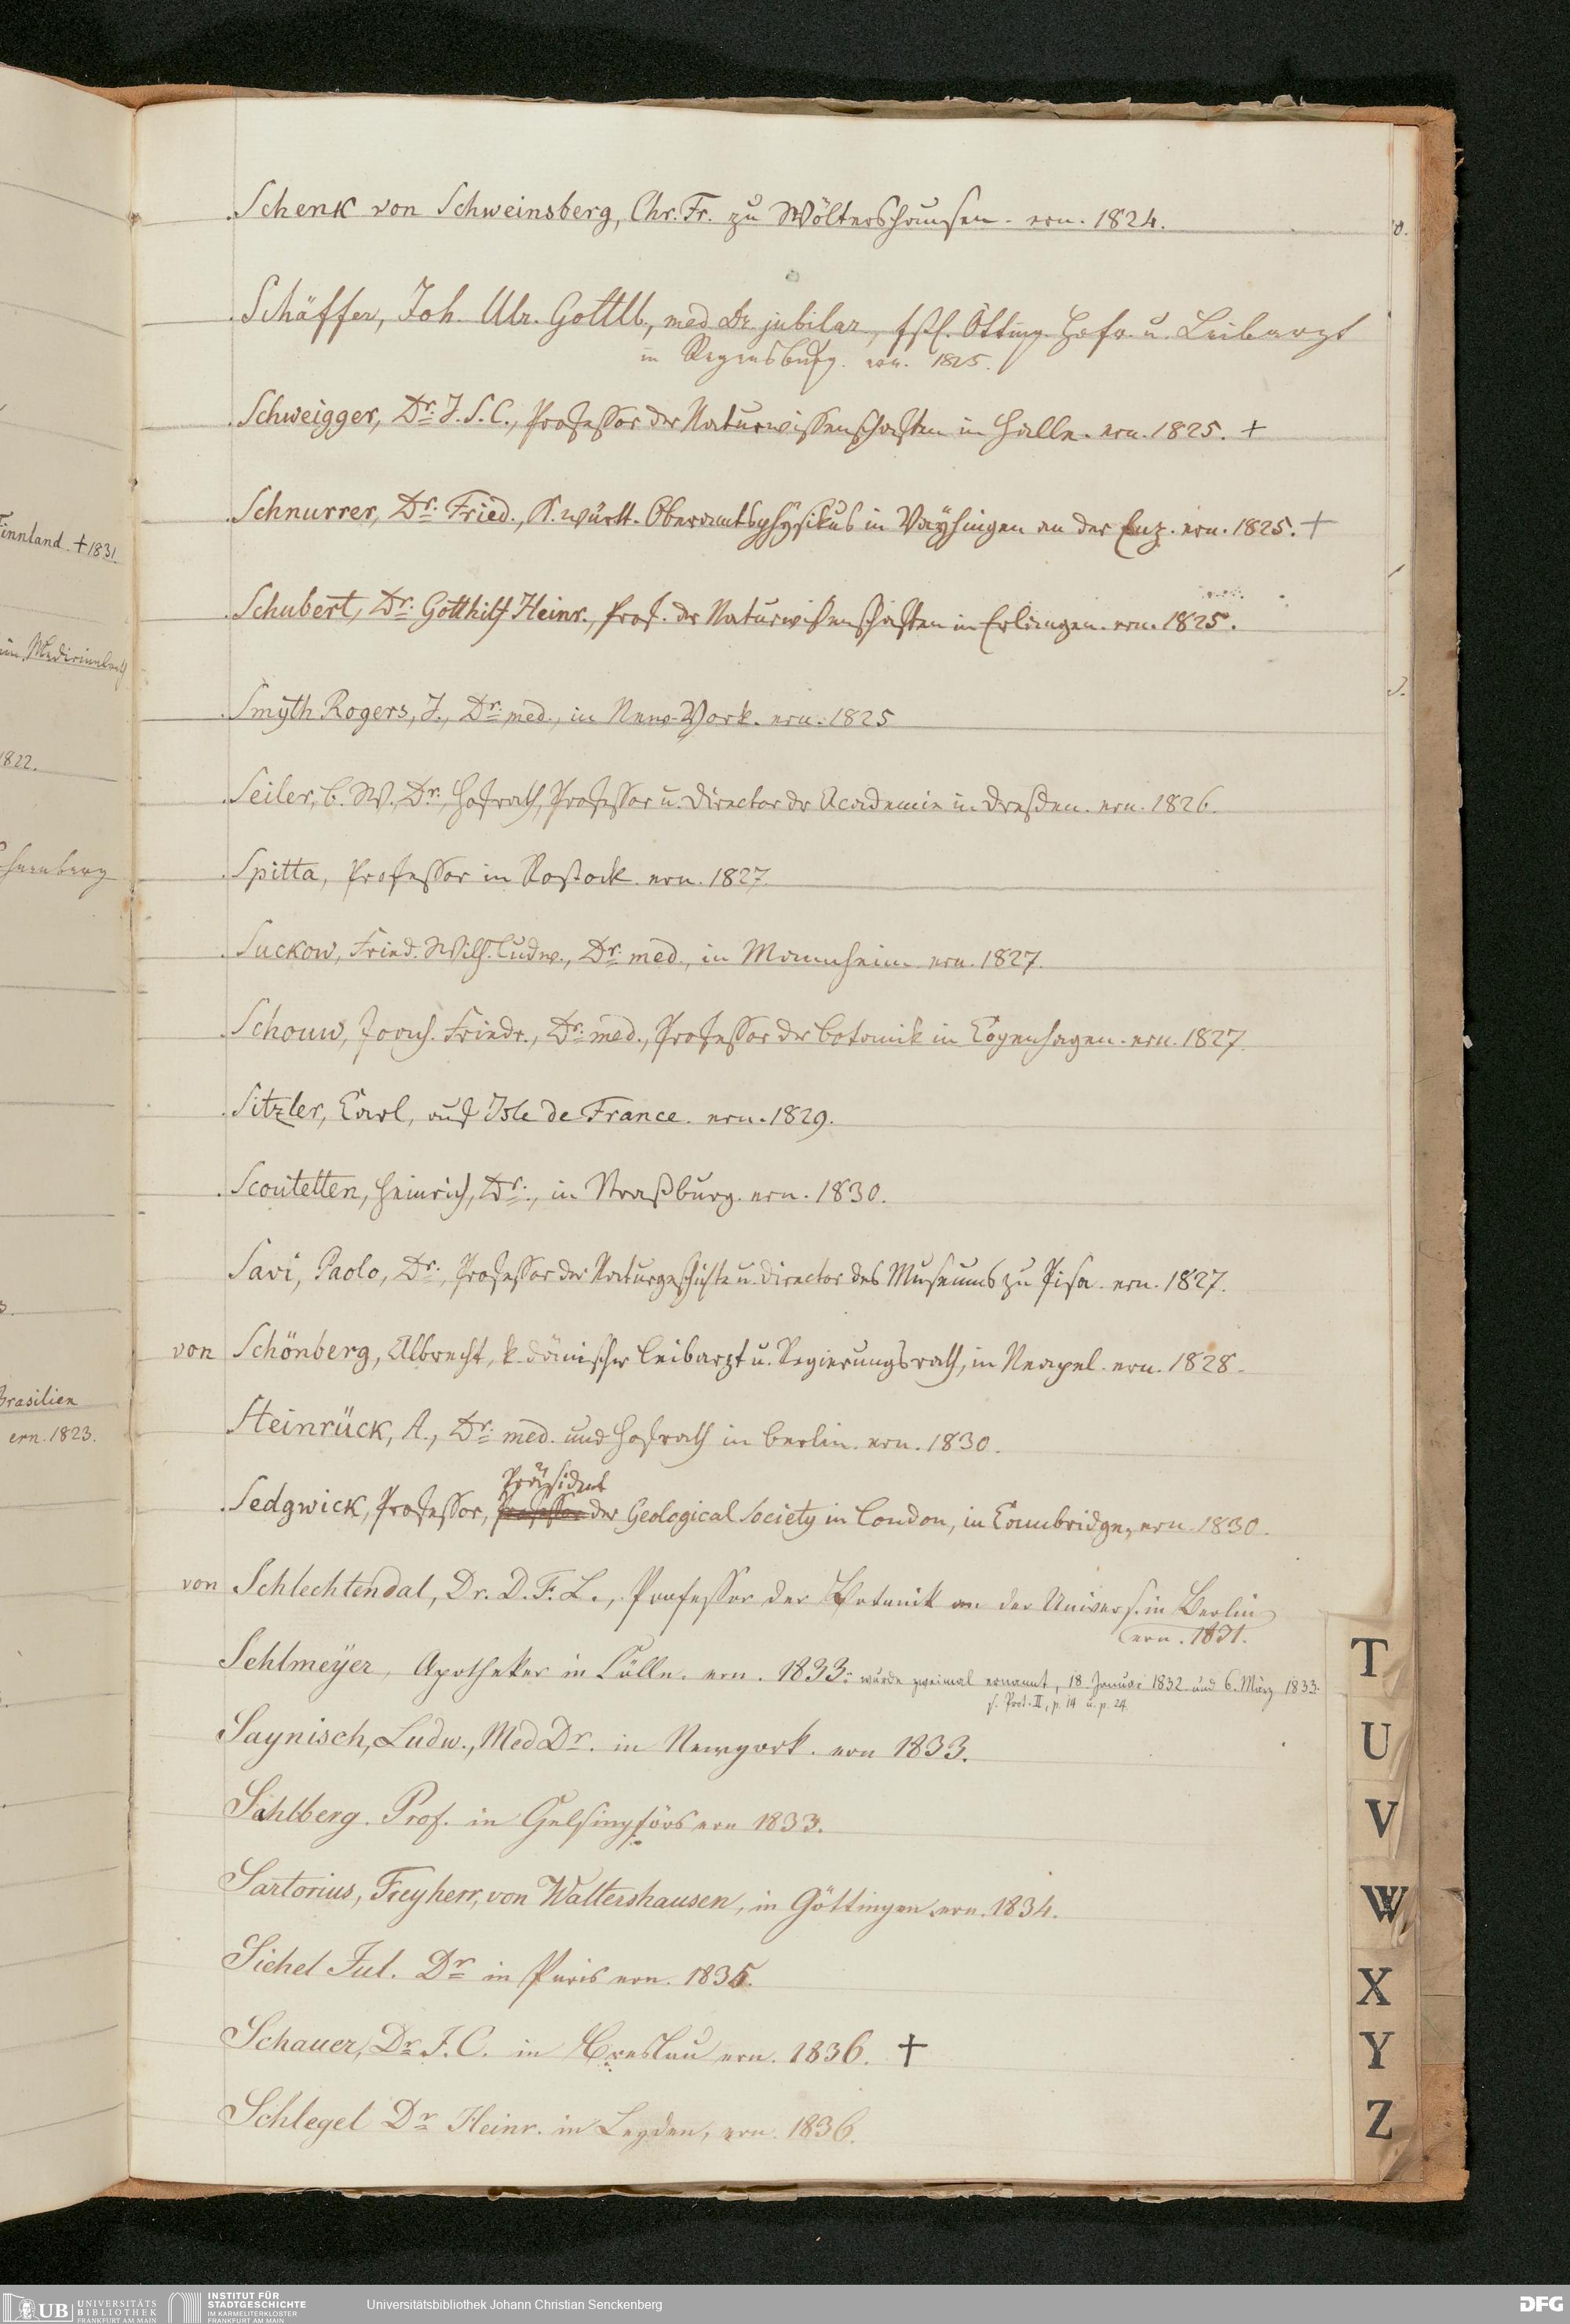 Schenk von Schweinsberg, Chr. Fr. zu Wöltershausen. ern. 1824.
Schäffer, Joh. Ulr. Gottlb., med. Dr. jubilar, fstl. Ötting. Hofr. u. Leibarzt
in Regensburg. ern. 1825.
Schweigger, Dr. J. S. C., Professor der Naturwissenschaften in Halle. ern. 1825. †
Schnurrer, Dr. Fried., K. württ. Oberamtsphysikus in Vayhingen an der Enz. ern. 1825. †
Schubert, Dr. Gotthilf Heinr., Prof. der Naturwissenschaften in Erlangen. ern. 1825.
Smyth Rogers, J., Dr. med., in New-York. ern. 1825
Seiler, B. W. Dr., Hofrath, Professor u. Director der Academie in Dresden. ern. 1826.
Spitta, Professor in Rostock. ern. 1827.
Suckow, Fried. Wilh. Ludw., Dr. med., in Mannheim ern. 1827.
Schouw, Joach. Friedr., Dr. med., Professor der Botanik in Copenhagen. ern. 1827.
Sitzler, Carl, auf Isle de France. ern. 1829.
Scoutetten, Heinrich, Dr., in Straßburg. ern. 1830.
Savi, Paolo, Dr., Professor der Naturgeschichte u. Director des Museums zu Pisa. ern. 1827.
von Schönberg, Albrecht, k. dänischer Leibarzt u. Regierungsrath, in Neapel. ern. 1828.
Steinrück, A., Dr. med. und Hofrath in Berlin. ern. 1830.
Präsident
Sedgwick, Professor, Professor der Geological Society in London, in Cambridge, ern. 1830.
von Schlechtendal, Dr. D. F. L., Professor der Botanik an der Univers. in Berlin
ern. 1831.
Sehlmeyer, Apotheker in Cölln. ern. 1833. wurde zweimal ernannt, 18. Januar 1832 und 6. März 1833.
s. Prot. II, p. 14 u. p. 24.
Saynisch, Ludw., Med Dr. in Newyork. ern 1833.
Sahlberg. Prof. in Helsingförs ern 1833.
Sartorius, Freyherr, von Waltershausen, in Göttingen ern. 1834.
Sichel Jul. Dr in Paris ern. 1835.
Schauer, Dr. J. C. in Breslau ern. 1836. †
Schlegel Dr Heinr. in Leyden, ern. 1836.
Finnland † 1831.
1822.
Brasilien
ern. 1823.
T
U
V
W
X
Y
Z
UB UNIVERSITÄTS
BIBLIOTHEK
FRANKFURT AM MAIN
INSTITUT FÜR
STADTGESCHICHTE
IM KARMELITERKLOSTER
FRANKFURT AM MAIN
Universitätsbibliothek Johann Christian Senckenberg
DFG